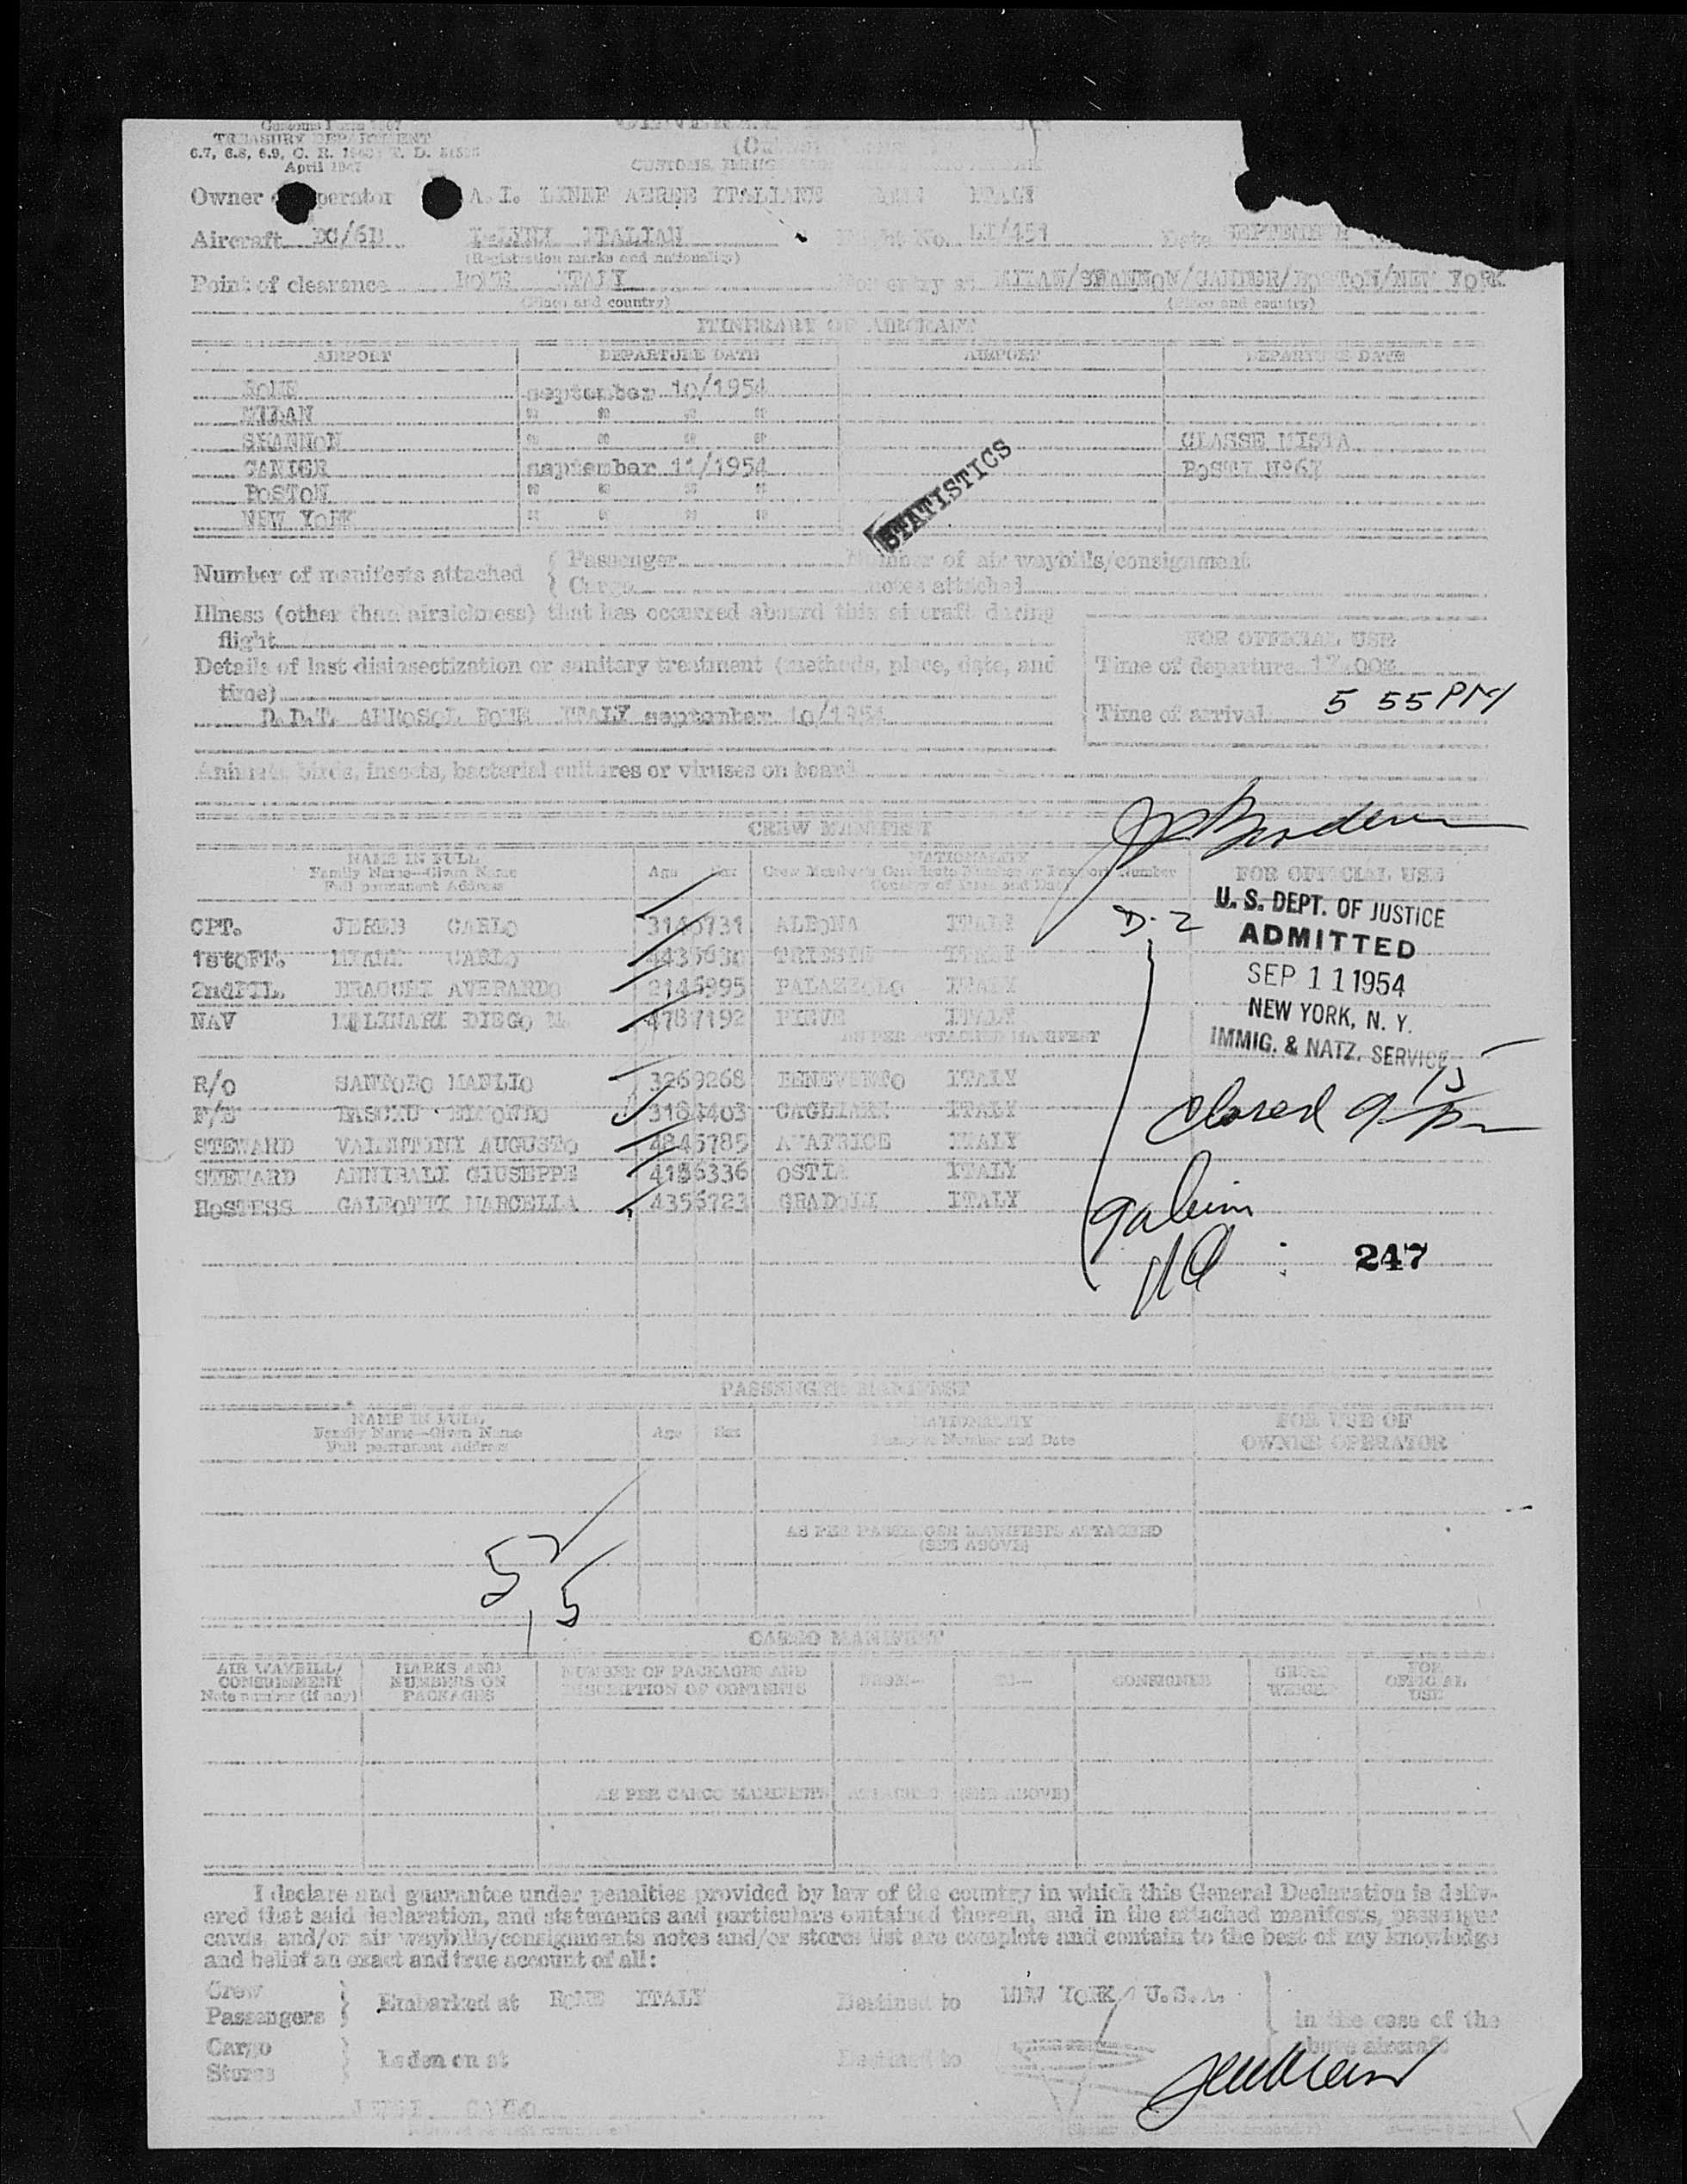 Customs Form
TREASURY DEPARTMENT
6.7, 6.8, 6.9, C. R. T. D.
April 1947
CUSTOMS,
Owner perator A. I. LINEE AEREE ITALIANE ITALY
Aircraft DC/6B ITALIAN No. LI/451 Date SEPTEMBER
(Registration marks and nationality)
Point of clearance ROME ITALY For entry at MILAN/SHANNON/GANDER/BOSTON/NEW YORK
(Place and country) (Place and country)
ITINERARY OF AIRCRAFT
AIRPORT DEPARTURE DATE AIRPORT DEPARTURE DATE
ROME september 10/1954
MILAN " " " "
SHANNON " " " " CLASSE MISTA
GANDER september 11/1954 POSTI
BOSTON " " " "
NEW YORK " " " "
STATISTICS
Number of manifests attached { Passenger Number of air waybills/consignment
{ Cargo notes attached
Illness (other than airsickness) that has occurred aboard this aircraft during
flight
FOR OFFICIAL USE
Details of last disinsectization or sanitary treatment (methods, place, date, and
time)
Time of departure
D.D.T. AEROSOL ROME ITALY september 10/1954
Time of arrival 5 55 PM
Animals, birds, insects, bacterial cultures or viruses on board
CREW MANIFEST
NAME IN FULL
Family Name—Given Name
Full permanent Address
Age Sex
NATIONALITY
Crew Member's Certificate Number or Passport Number
Country of Issue and Date
FOR OFFICIAL USE
U. S. DEPT. OF JUSTICE
ADMITTED
SEP 11 1954
NEW YORK, N. Y.
IMMIG. & NATZ. SERVICE
D-2
CPT. CARLO ITALY
1stOFF. CARLO TRIESTE ITALY
2ndPIL. AVERARDO 2146995 PALAZZOLO ITALY
NAV MOLINARI DIEGO M. 4787192 PIEVE ITALY
AS PER ATTACHED MANIFEST
R/O SANTORO MANLIO 3269268 BENEVENTO ITALY
F/E CAGLIARI ITALY
STEWARD VALENTINI AUGUSTO 4845785 AMATRICE ITALY
STEWARD ANNIBALI GIUSEPPE 4156336 OSTIA ITALY
HOSTESS GALEOTTI MARCELLA 4356723 GRADOLI ITALY
Closed
247
PASSENGER MANIFEST
NAME IN FULL
Family Name—Given Name
Full permanent Address
Age Sex
NATIONALITY
Passport Number and Date
FOR USE OF
OWNER OPERATOR
AS PER PASSENGER MANIFESTS ATTACHED
(SEE ABOVE)
CARGO MANIFEST
AIR WAYBILL/
CONSIGNMENT
Note number (if any)
MARKS AND
NUMBERS ON
PACKAGES
NUMBER OF PACKAGES AND
DESCRIPTION OF CONTENTS
FROM— TO— CONSIGNEE
GROSS
WEIGHT
FOR
OFFICIAL
USE
AS PER CARGO MANIFESTS ATTACHED (SEE ABOVE)
I declare and guarantee under penalties provided by law of the country in which this General Declaration is deliv-
ered that said declaration, and statements and particulars contained therein, and in the attached manifests, passenger
cards, and/or air waybills/consignments notes and/or stores list are complete and contain to the best of my knowledge
and belief an exact and true account of all:
Crew
Passengers } Embarked at ROME ITALY Destined to NEW YORK / U.S.A.
in the case of the
above aircraft
Cargo
Stores } Laden on at Destined to
CARLO